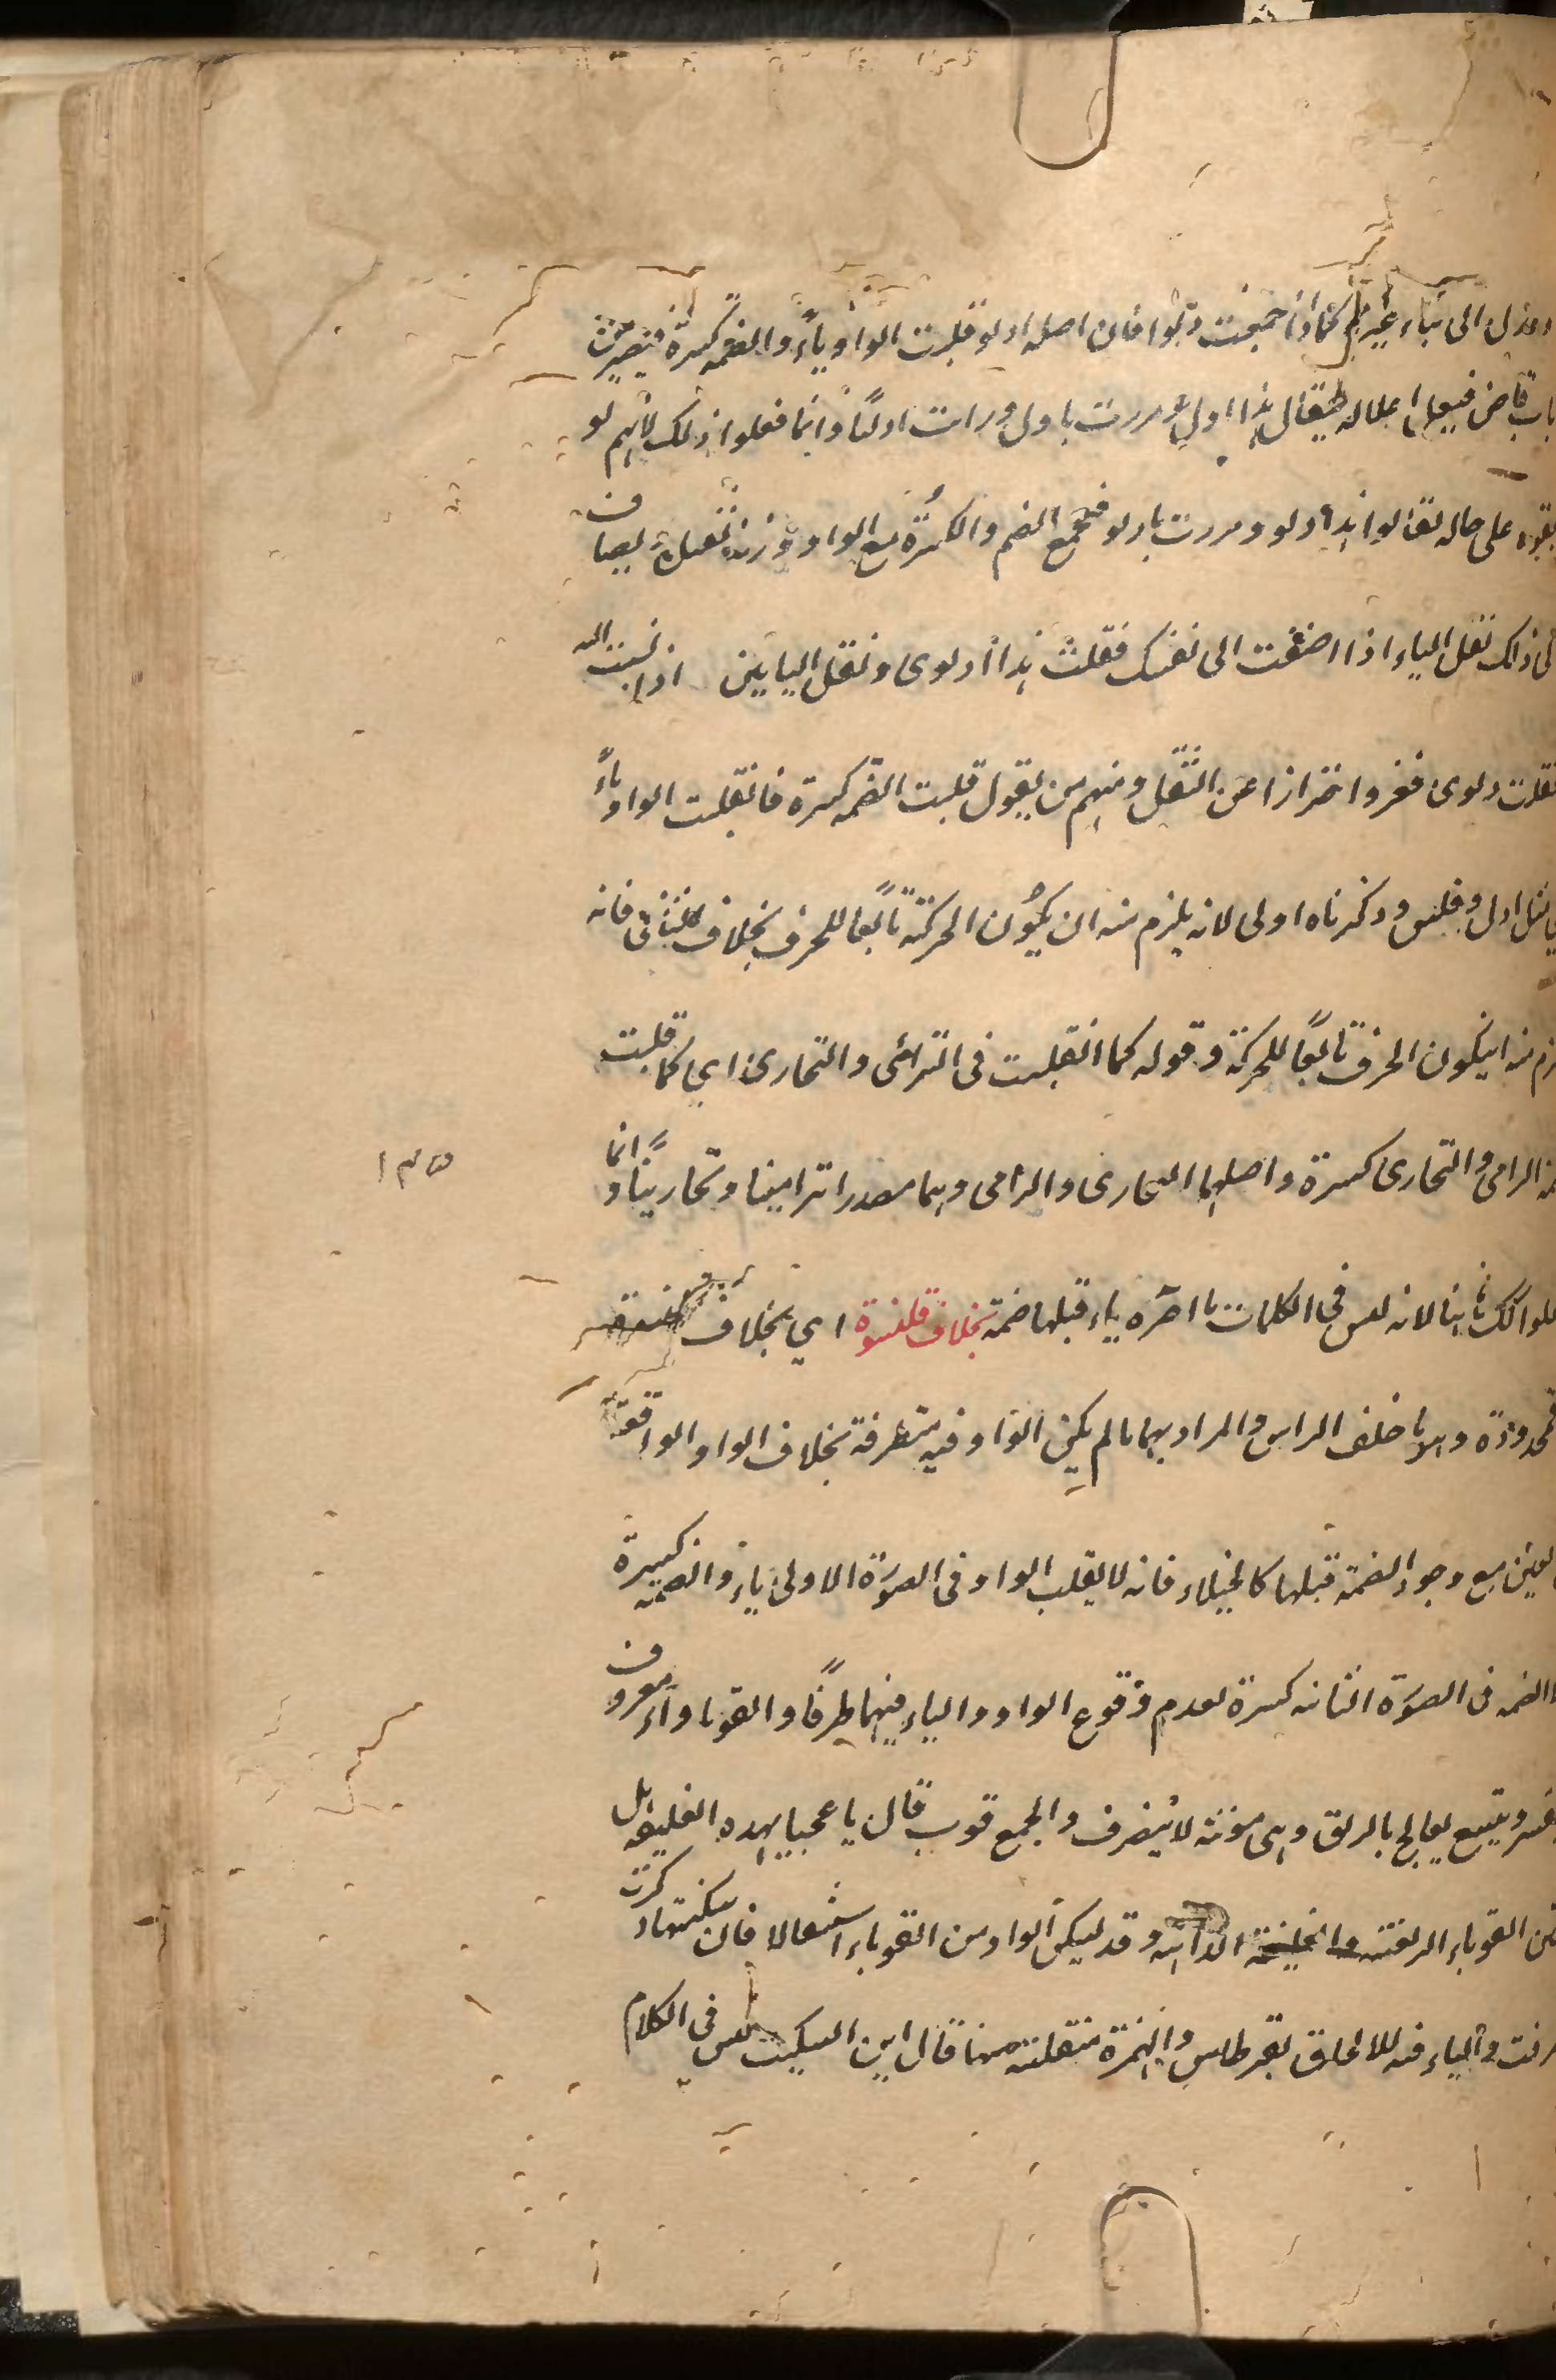 الى بناء غير كما اذا جمعت دلوا فان اصله ادلو قلبت الواو ياء والضمة كسرة فيصير من
باب قاض فيعل اعلاله فيقال هذا ادل ومررت بادل ورايت ادليا وانما فعلوا ذلك لانهم لو
على حاله لقالوا هذا ادلو ومررت بادلو فيجمع الضم والكسرة مع الواو
ذلك ثقل الياء اذا اضفت الى نفسك فقلت هذا ادلوى وثقل اليايين اذا نسبت اليه
فقلت دلوى ففروا احترازا عن الثقل ومنهم من يقول قلبت الضمة كسرة فانقلبت الواو ياء
ادل وقلنس وذكرناه اولى لانه يلزم منه ان يكون الحركة تابعا للحرف بخلاف الثانى فانه
منه ان يكون الحرف تابعا للحركة وقوله كما انقلبت فى الترامى والتجارى اى كما قلبت
الرامى والتجارى كسرة واصلهما التجارى والترامى وهما مصدرا ترامينا وتجارينا وانما
١٣٥
لانه ليس فى الكلمات ما اخره ياء قبلها ضمة بخلاف قلنسوة اى بخلاف
قمحدوة وهى ما خلف الراس والمراد بهما ما لم يكن الواو فيه متطرفة بخلاف الواو الواقعة
مع وجود الضمة قبلها كالخيلاء فانه لا يقلب الواو فى الصورة الاولى ياء والضمة كسرة
الضمة فى الصورة الثانية كسرة لعدم وقوع الواو والياء فيهما طرفا والقوباء داء معروف
ويتسع يعالج بالريق وهى مؤنثة لا ينصرف والجمع قوب قال يا عجبا لهذه الفليقة هل
القوباء الريقة الداهية وقد يسكن الواو من القوباء استثقالا فان سكنتها ذكرت
والياء فيه للالحاق بقرطاس والهمزة منقلبة منها قال ابن السكيت ليس فى الكلام